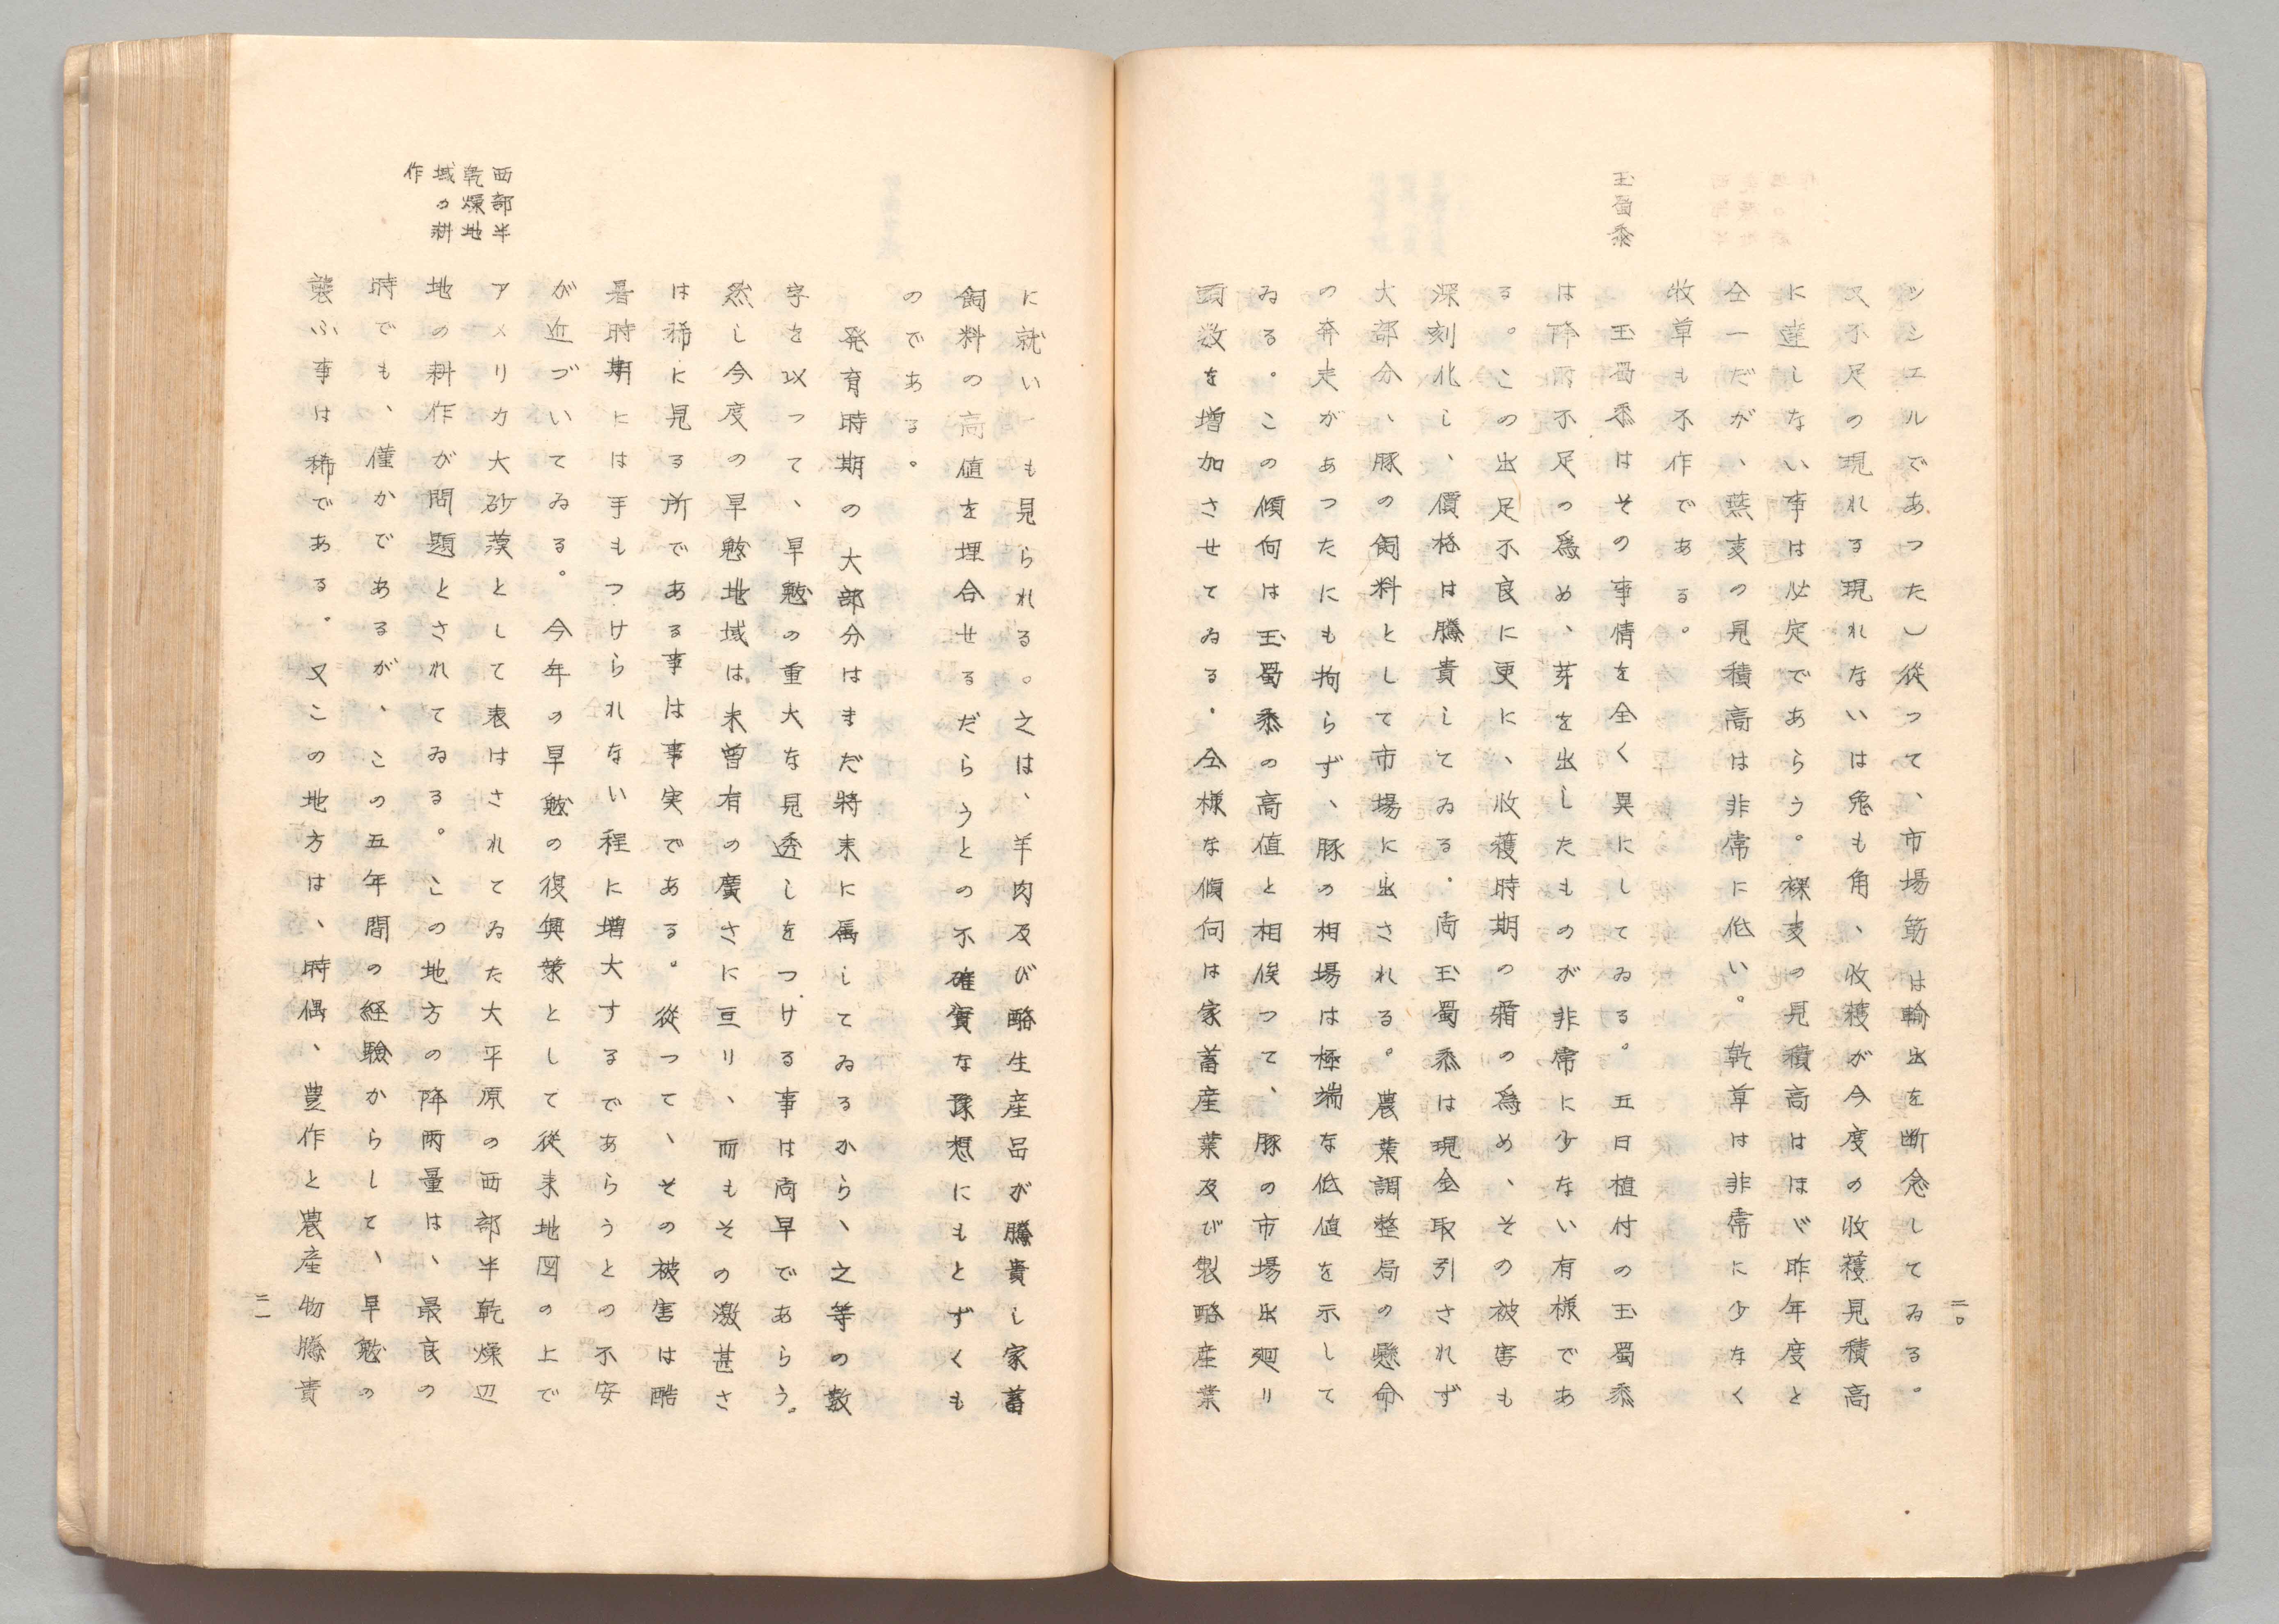 二〇
ッシエルであった)従って、市場筋は輸出を断念してゐる。
又不足の現れる現れないは兎も角、收穫が今度の收穫見積高
に達しない事は必定であらう。裸麦の見積高はほゞ昨年度と
仝一だが、燕麦の見積高は非常に低い。乾草は非常に少なく
牧草も不作である。
玉蜀黍
玉蜀黍はその事情を全く異にしてゐる。五日植付の玉蜀黍
は降雨不足の爲め、芽を出したものが非常に少ない有様であ
る。この出足不良に更に、收穫時期の霜の爲め、その被害も
深刻化し、價格は騰貴してゐる。尚玉蜀黍は現金取引されず
大部分、豚の飼料として市場に出される。農業調整局の懸命
の奔走があつたにも拘らず、豚の相場は極端な低値を示して
ゐる。この傾向は玉蜀黍の高値と相俟つて、豚の市場出廻り
頭数を増加させてゐる。仝様な傾向は家畜産業及び製酪産業
に就いても見られる。之は、羊肉及び酪生産品が騰貴し家畜
飼料の高値を埋合せるだらうとの不確實な豫想にもとずくも
のである。
発育時期の大部分はまだ將来に属してゐるから、之等の数
字を以って、旱魃の重大な見透しをつける事は尚早であらう。
然し今度の旱魃地域は未曽有の廣さに亘り、而もその激甚さ
は稀に見る所である事は事実である。従つて、その被害は酷
暑時期には手もつけられない程に増大するであらうとの不安
が近づいてゐる。今年の旱魃の復興策として従来地図の上で
西部半
乾燥地
域の耕
作
アメリカ大砂漠として表はされてゐた大平原の西部半乾燥辺
地の耕作が問題とされてゐる。この地方の降雨量は、最良の
時でも、僅かであるが、この五年間の経験からして、旱魃の
襲ふ事は稀である。又この地方は、時偶、豊作と農産物騰貴
二一